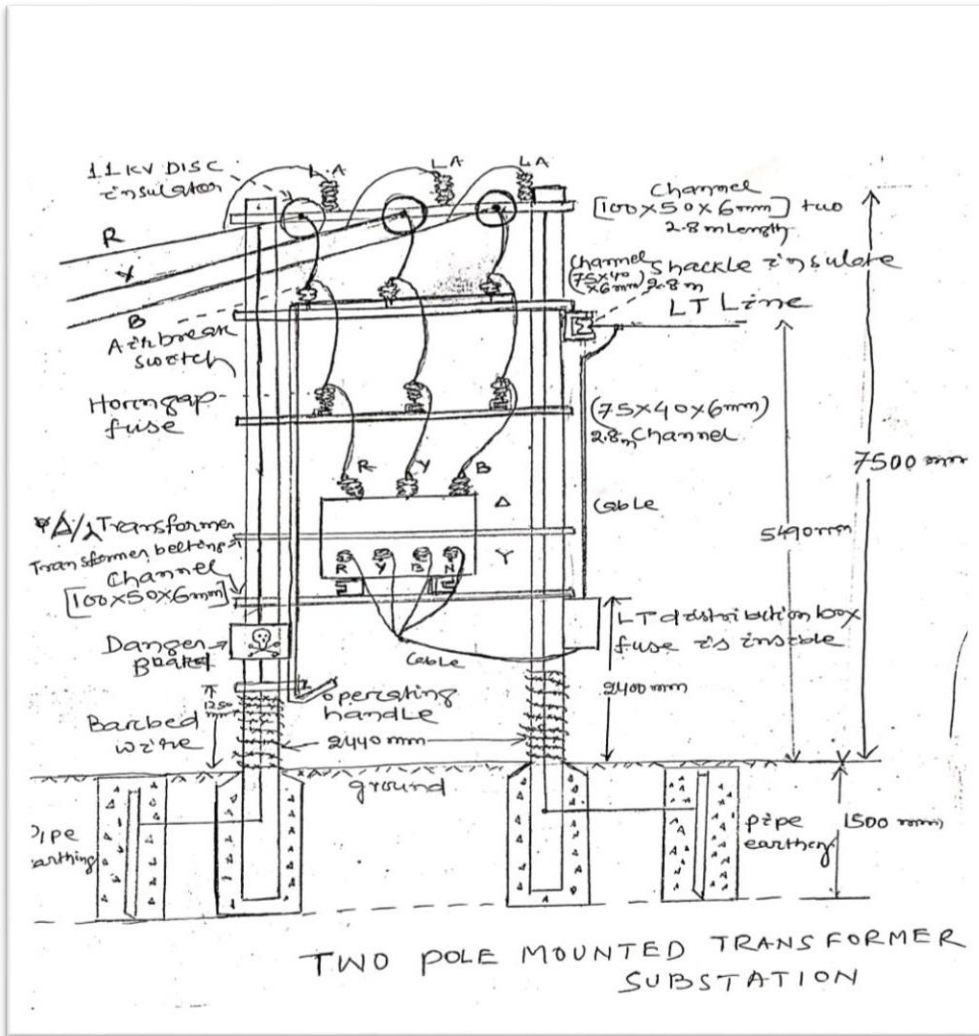 11KV DISC
insulator
L.A
LA
LA
Channel
[100X50X6mm] two
2.8m Length
R
Y
B
Channel
(75X40
X6mm) 2.8m
Shackle insulate
LT Line
Air break
switch
Horn gap-
fuse
(75X40X6mm)
2.8m Channel
7500 mm
R
Y
B
Δ
Cable
5490mm
Δ/⅄ Transformer
Transformer belting
Channel
[100X50X6mm]
Y
R
Y
B
N
LT distribution box
fuse is inside
Danger
Board
Cable
2400 mm
1250
mm
operating
handle
Barbed
wire
2440 mm
ground
pipe
earthing
pipe
earthing
1500 mm
TWO POLE MOUNTED TRANSFORMER
SUBSTATION